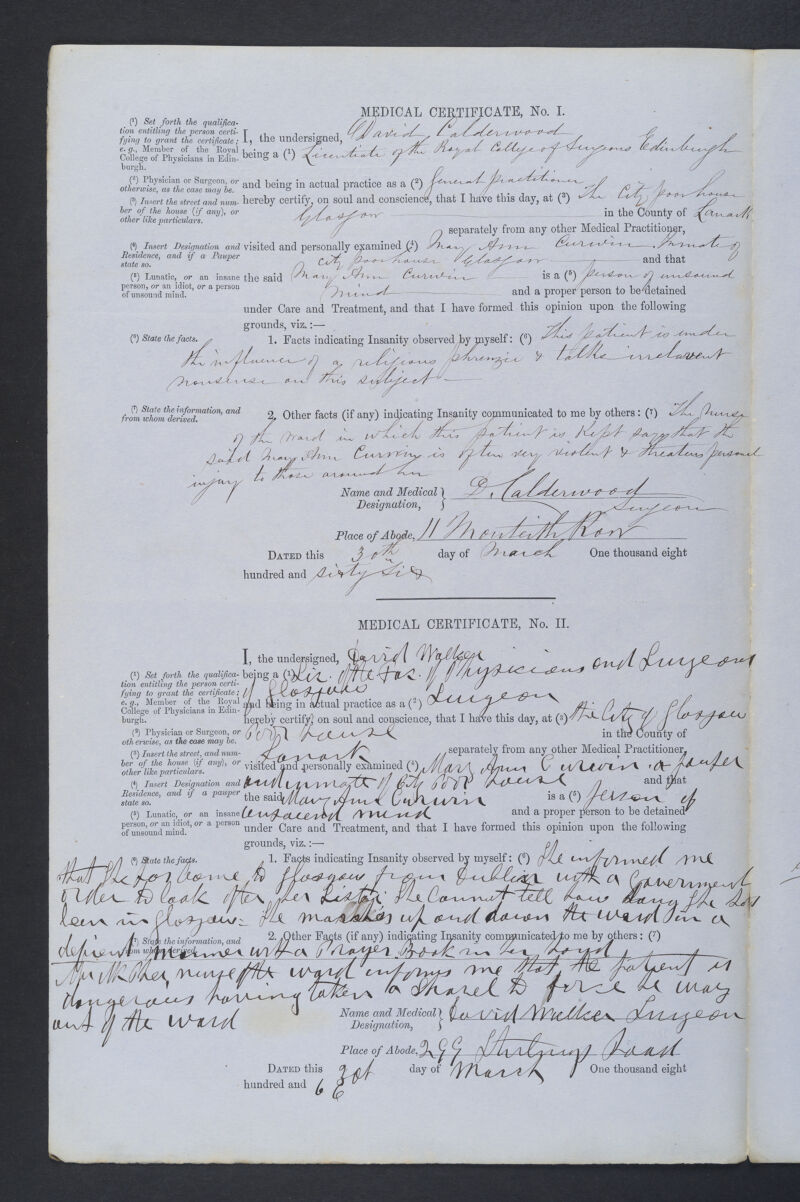 MEDICAL CERTIFICATE, No. I.
(1) Set forth the qualifica-
tion entitling the person certi-
fying to grant the certificate;
e.g., Member of the Royal
College of Physicians in Edin-
burgh.
I, the undersigned, David Calderwood
being a (1) Licentiate of the Royal College of Surgeons Edinburgh
(2) Physician or Surgeon, or
otherwise, as the case may be.
and being in actual practice as a (2) General Practitioner
(3) Insert the street and num-
ber of the house (if any), or
other like particulars.
hereby certify, on soul and conscience, that I have this day, at (3) The City poor house
Glasgow in the County of Lanark
separately from any other Medical Practitioner,
(4) Insert Designation and
Residence, and if a Pauper
state so.
visited and personally examined (4) Mary Ann Curwin Inmate of
City poor house Glasgow and that
(5) Lunatic, or an insane
person, or an idiot, or a person
of unsound mind.
the said Mary Ann Curwin is a (5) person of unsound
mind and a proper person to be detained
under Care and Treatment, and that I have formed this opinion upon the following
grounds, viz.:—
(6) State the facts.
1. Facts indicating Insanity observed by myself: (6) This patient is under
the influence of a religious phrenzie & talks irrelavent
nonsense on this subject
(7) State the information, and
from whom derived.
2. Other facts (if any) indicating Insanity communicated to me by others: (7) The Nurse
of the ward in which this patient is kept says that the
said Mary Ann Curwin is often very violent & threatens personal
injury to those around her
Name and Medical
Designation, D. Calderwood
Surgeon
Place of Abode, 11 Monteith Row
DATED this 30th day of March One thousand eight
hundred and sixty six
MEDICAL CERTIFICATE, No. II.
(1) Set forth the qualifica-
tion entitling the person certi-
fying to grant the certificate;
e.g., Member of the Royal
College of Physicians in Edin-
burgh.
I, the undersigned, David Walker
being a (1) Lic. of the Fac. of Physicians and Surgeons
of Glasgow
(2) Physician or Surgeon, or
otherwise, as the case may be.
and being in actual practice as a (2) Surgeon
hereby certify, on soul and conscience, that I have this day, at (3) the City of Glasgow
Poor House in the County of
(3) Insert the street, and num-
ber of the house (if any), or
other like particulars.
Lanark separately from any other Medical Practitioner,
visited and personally examined (4) Mary Ann Curwin a pauper
(4) Insert Designation and
Residence, and if a pauper
state so.
and inmate of City Poor House and that
the said Mary Ann Curwin is a (5) Person of
(5) Lunatic, or an insane
person, or an idiot, or a person
of unsound mind.
unsound mind and a proper person to be detained
under Care and Treatment, and that I have formed this opinion upon the following
grounds, viz.:—
(6) State the facts.
1. Facts indicating Insanity observed by myself: (6) She informed me
that she has come to Glasgow from Dublin with a Government
order to look after her Sister. She cannot tell how long she has
been in Glasgow. She marches up and down the ward in a
(7) State the information, and
from whom derived.
2. Other Facts (if any) indicating Insanity communicated to me by others: (7)
manner with a Prayer Book in her hand
nurse of the ward informs me that the patient is
dangerous having taken a shovel to force her way
out of the ward
Name and Medical
Designation, David Walker Surgeon
Place of Abode, 299 Stirlings Road
DATED this day of March One thousand eight
hundred and 66